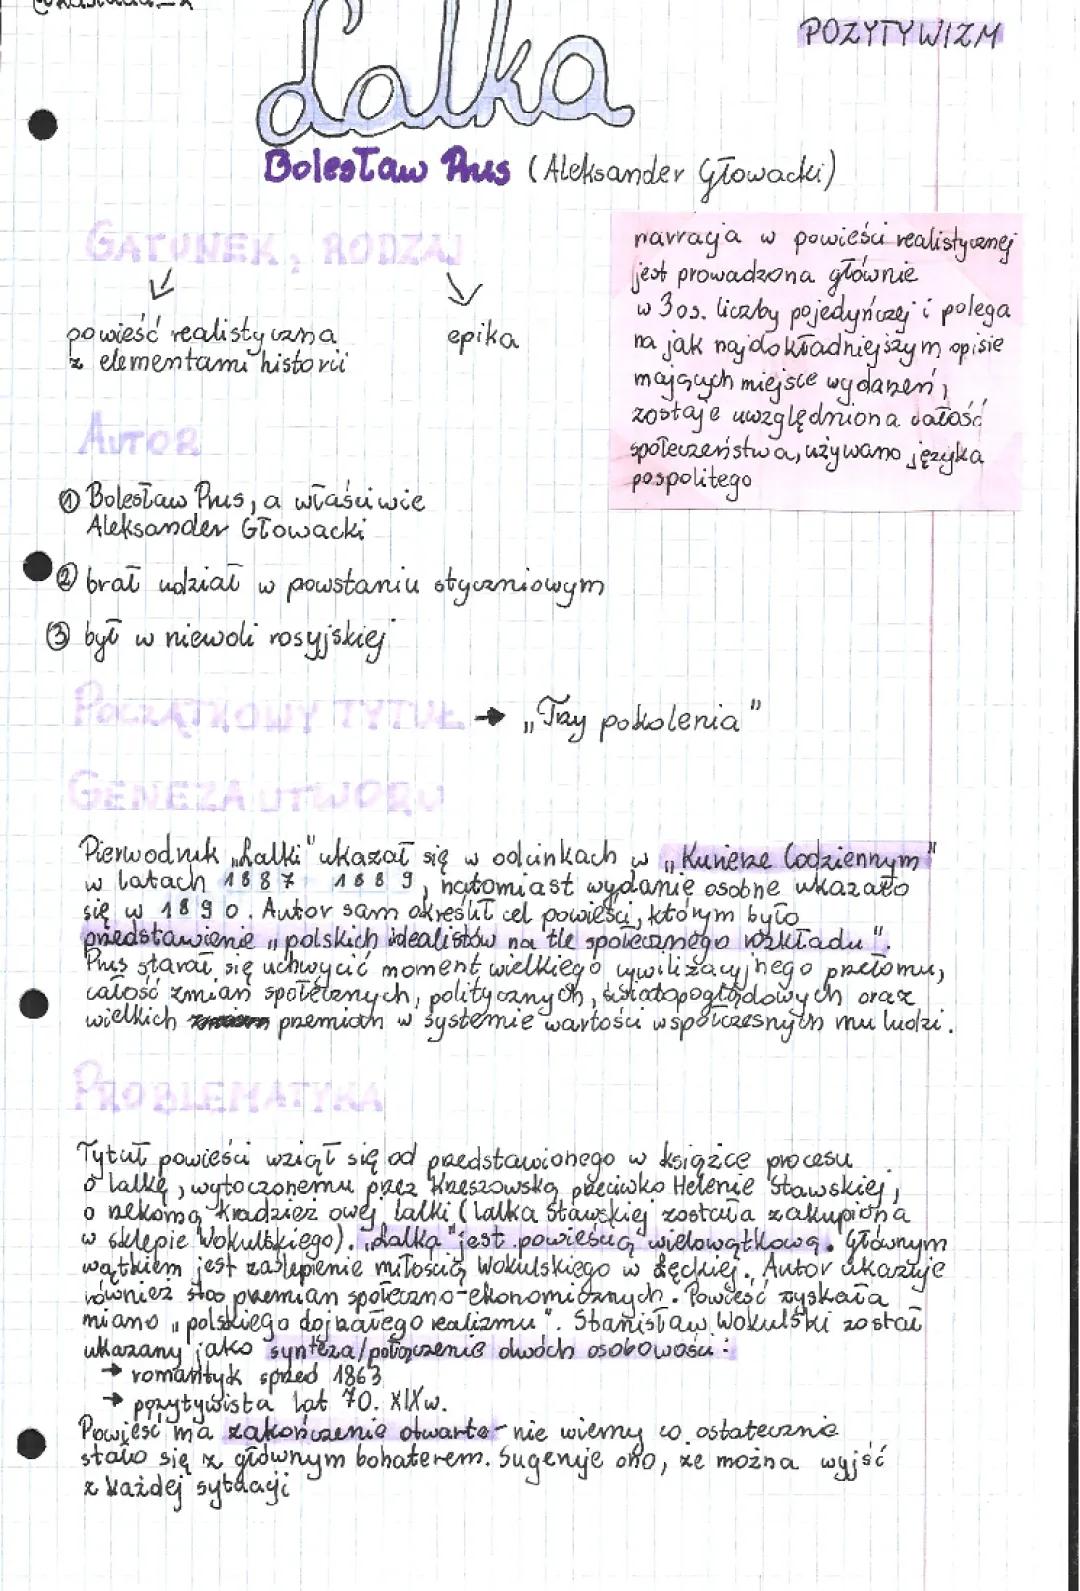 POZYTYWIZM
Lalka
Bolesław Prus (Aleksander Głowacki)
GATUNEK, RODZAJ
powieść realistyczna
z elementami historii
epika
narracja w powieści realistycznej
jest prowadzona głównie
w 3 os. liczby pojedyńczej i polega
na jak najdokładniejszym opisie
mających miejsce wydarzeń,
zostaje uwzględniona całość
społeczeństwa, używano języka
pospolitego
AUTOR
① Bolesław Prus, a właściwie
Aleksander Głowacki
② brał udział w powstaniu styczniowym
③ był w niewoli rosyjskiej
POCZĄTKOWY TYTUŁ → „Trzy pokolenia"
GENEZA UTWORU
Pierwodruk „Lalki" ukazał się w odcinkach w „Kurierze Codziennym"
w latach 1887 1889, natomiast wydanie osobne ukazało
się w 1890. Autor sam określił cel powieści, którym było
przedstawienie „polskich idealistów na tle społecznego rozkładu".
Prus starał się uchwycić moment wielkiego cywilizacyjnego przełomu,
całość zmian społecznych, politycznych, światopoglądowych oraz
wielkich przemian w systemie wartości współczesnych mu ludzi.
PROBLEMATYKA
Tytuł powieści wziął się od przedstawionego w książce procesu
o lalkę, wytoczonemu przez Krzeszowską przeciwko Helenie Stawskiej,
o rzekomą kradzież owej lalki (lalka Stawskiej została zakupiona
w sklepie Wokulskiego). „Lalka" jest powieścią wielowątkową. Głównym
wątkiem jest zaślepienie miłością Wokulskiego w Łęckiej. Autor ukazuje
również stos przemian społeczno-ekonomicznych. Powieść zyskała
miano „polskiego dojrzałego realizmu". Stanisław Wokulski został
ukazany jako synteza/połączenie dwóch osobowości:
→ romantyk sprzed 1863
→ pozytywista lat 70. XIX w.
Powieść ma zakończenie otwarte - nie wiemy co ostatecznie
stało się z głównym bohaterem. Sugeruje ono, że można wyjść
z każdej sytuacji